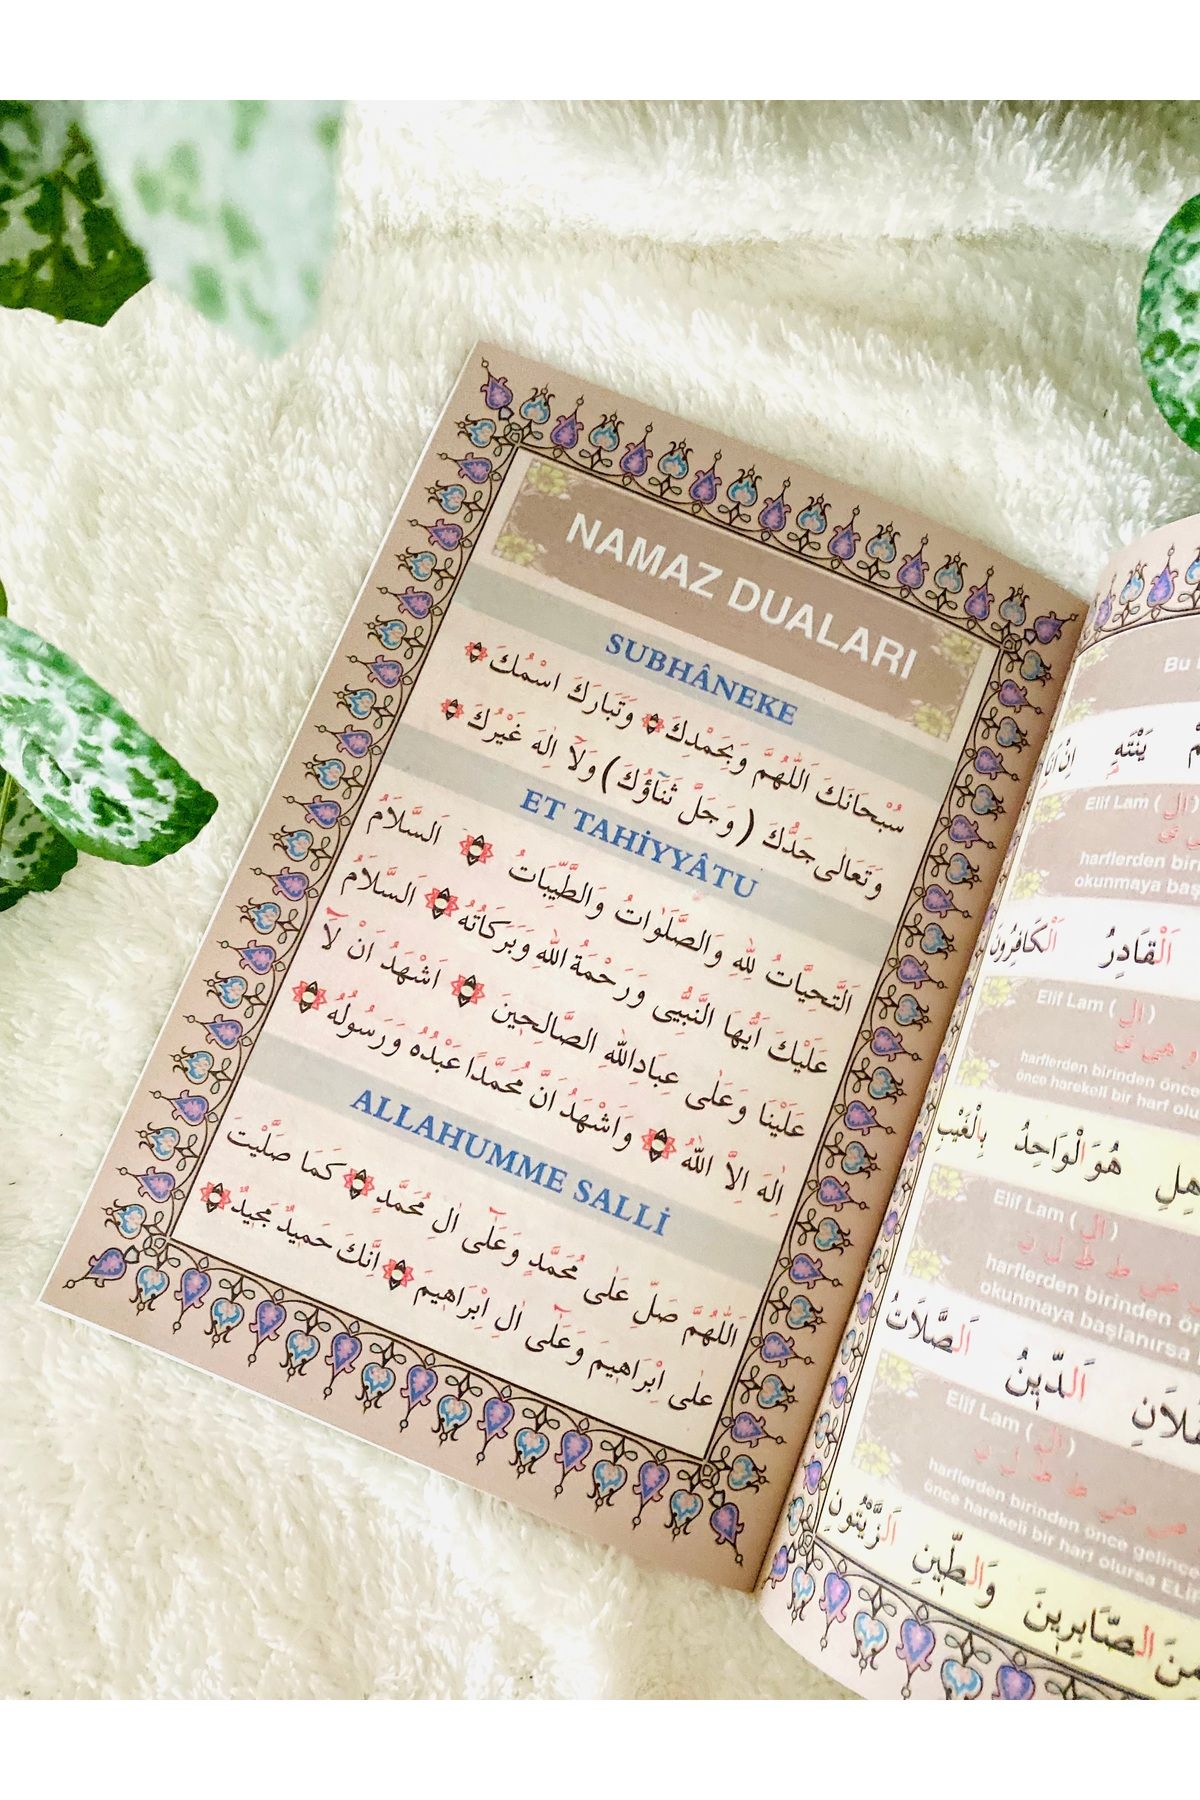 NAMAZ DUALARI
SUBHÂNEKE
سُبْحَانَكَ اَللّٰهُمَّ وَبِحَمْدِكَ وَتَبَارَكَ اسْمُكَ
وَتَعَالٰى جَدُّكَ ( وَجَلَّ ثَنَاۤؤُكَ ) وَلَاۤ اِلٰهَ غَيْرُكَ
ET TAHİYYÂTU
اَلتَّحِيَّاتُ لِلّٰهِ وَالصَّلَوَاتُ وَالطَّيِّبَاتُ اَلسَّلَامُ
عَلَيْكَ اَيُّهَا النَّبِيُّ وَرَحْمَةُ اللّٰهِ وَبَرَكَاتُهُ اَلسَّلَامُ
عَلَيْنَا وَعَلٰى عِبَادِاللّٰهِ الصَّالِحٖينَ اَشْهَدُ اَنْ لَاۤ
اِلٰهَ اِلَّا اللّٰهُ وَاَشْهَدُ اَنَّ مُحَمَّدًا عَبْدُهُ وَرَسُولُهُ
ALLAHUMME SALLİ
اَللّٰهُمَّ صَلِّ عَلٰى مُحَمَّدٍ وَعَلٰۤى اٰلِ مُحَمَّدٍ كَمَا صَلَّيْتَ
عَلٰى اِبْرَاهٖيمَ وَعَلٰۤى اٰلِ اِبْرَاهٖيمَ اِنَّكَ حَمٖيدٌ مَجٖيدٌ
Bu
يَنْتَهِ
Elif Lam ( ال )
harflerden biri
okunmaya baş
اَلْقَادِرُ اَلْكَافِرُونَ
Elif Lam ( ال )
و هى ي
harflerden birinden önce
önce harekeli bir harf olu
هُوَ الْوَاحِدُ بِالْغَيْبِ
Elif Lam ( ال )
harflerden birinden ön
okunmaya başlanırsa
اَلدّٖينُ اَلصَّلَاتُ
Elif Lam ( ال )
harflerden birinden önce gelince
önce harekeli bir harf olursa ELİ
وَالطّٖينِ اَلزَّيْتُونِ
الصَّابِرٖينَ